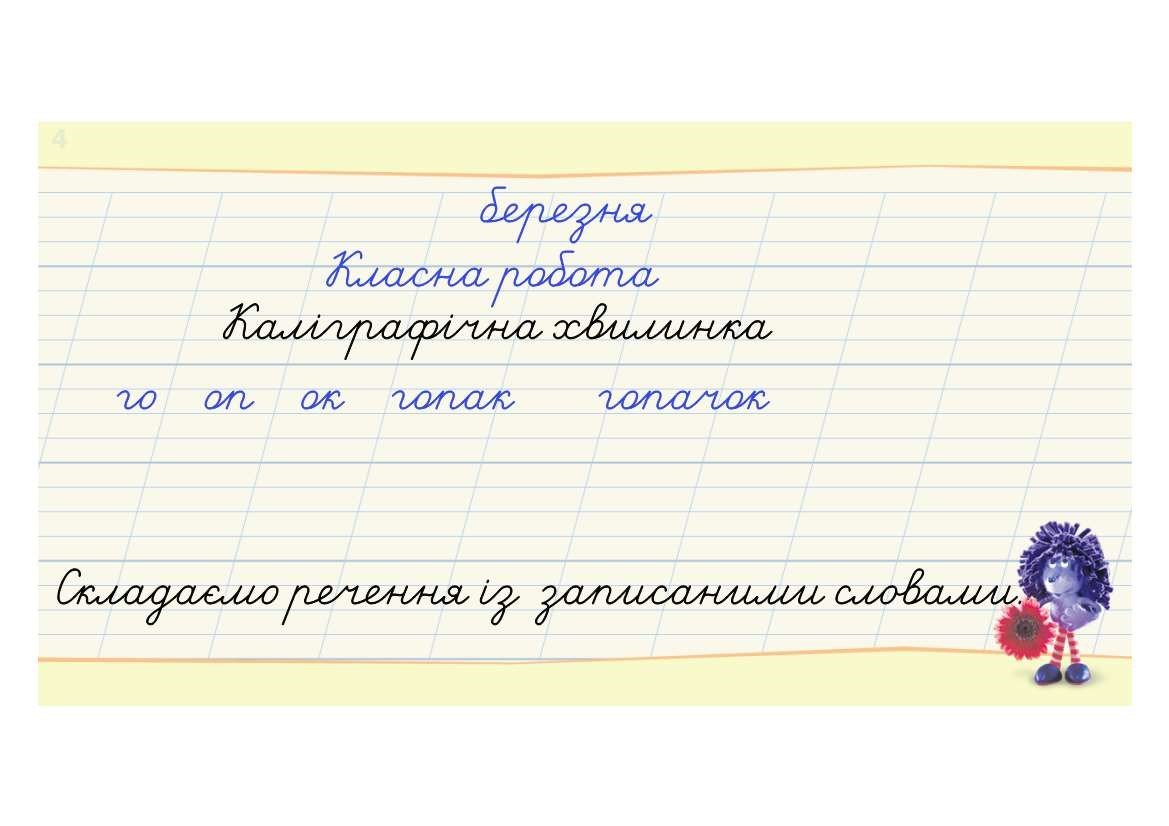 4
березня
Класна робота
Каліграфічна хвилинка
го оп ок гопак гопачок
Складаємо речення із записаними словами.